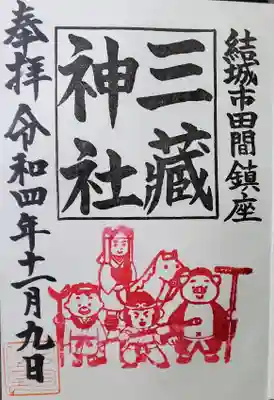 結城市田間鎮座
三藏
神社
奉拝
令和四年十一月九日